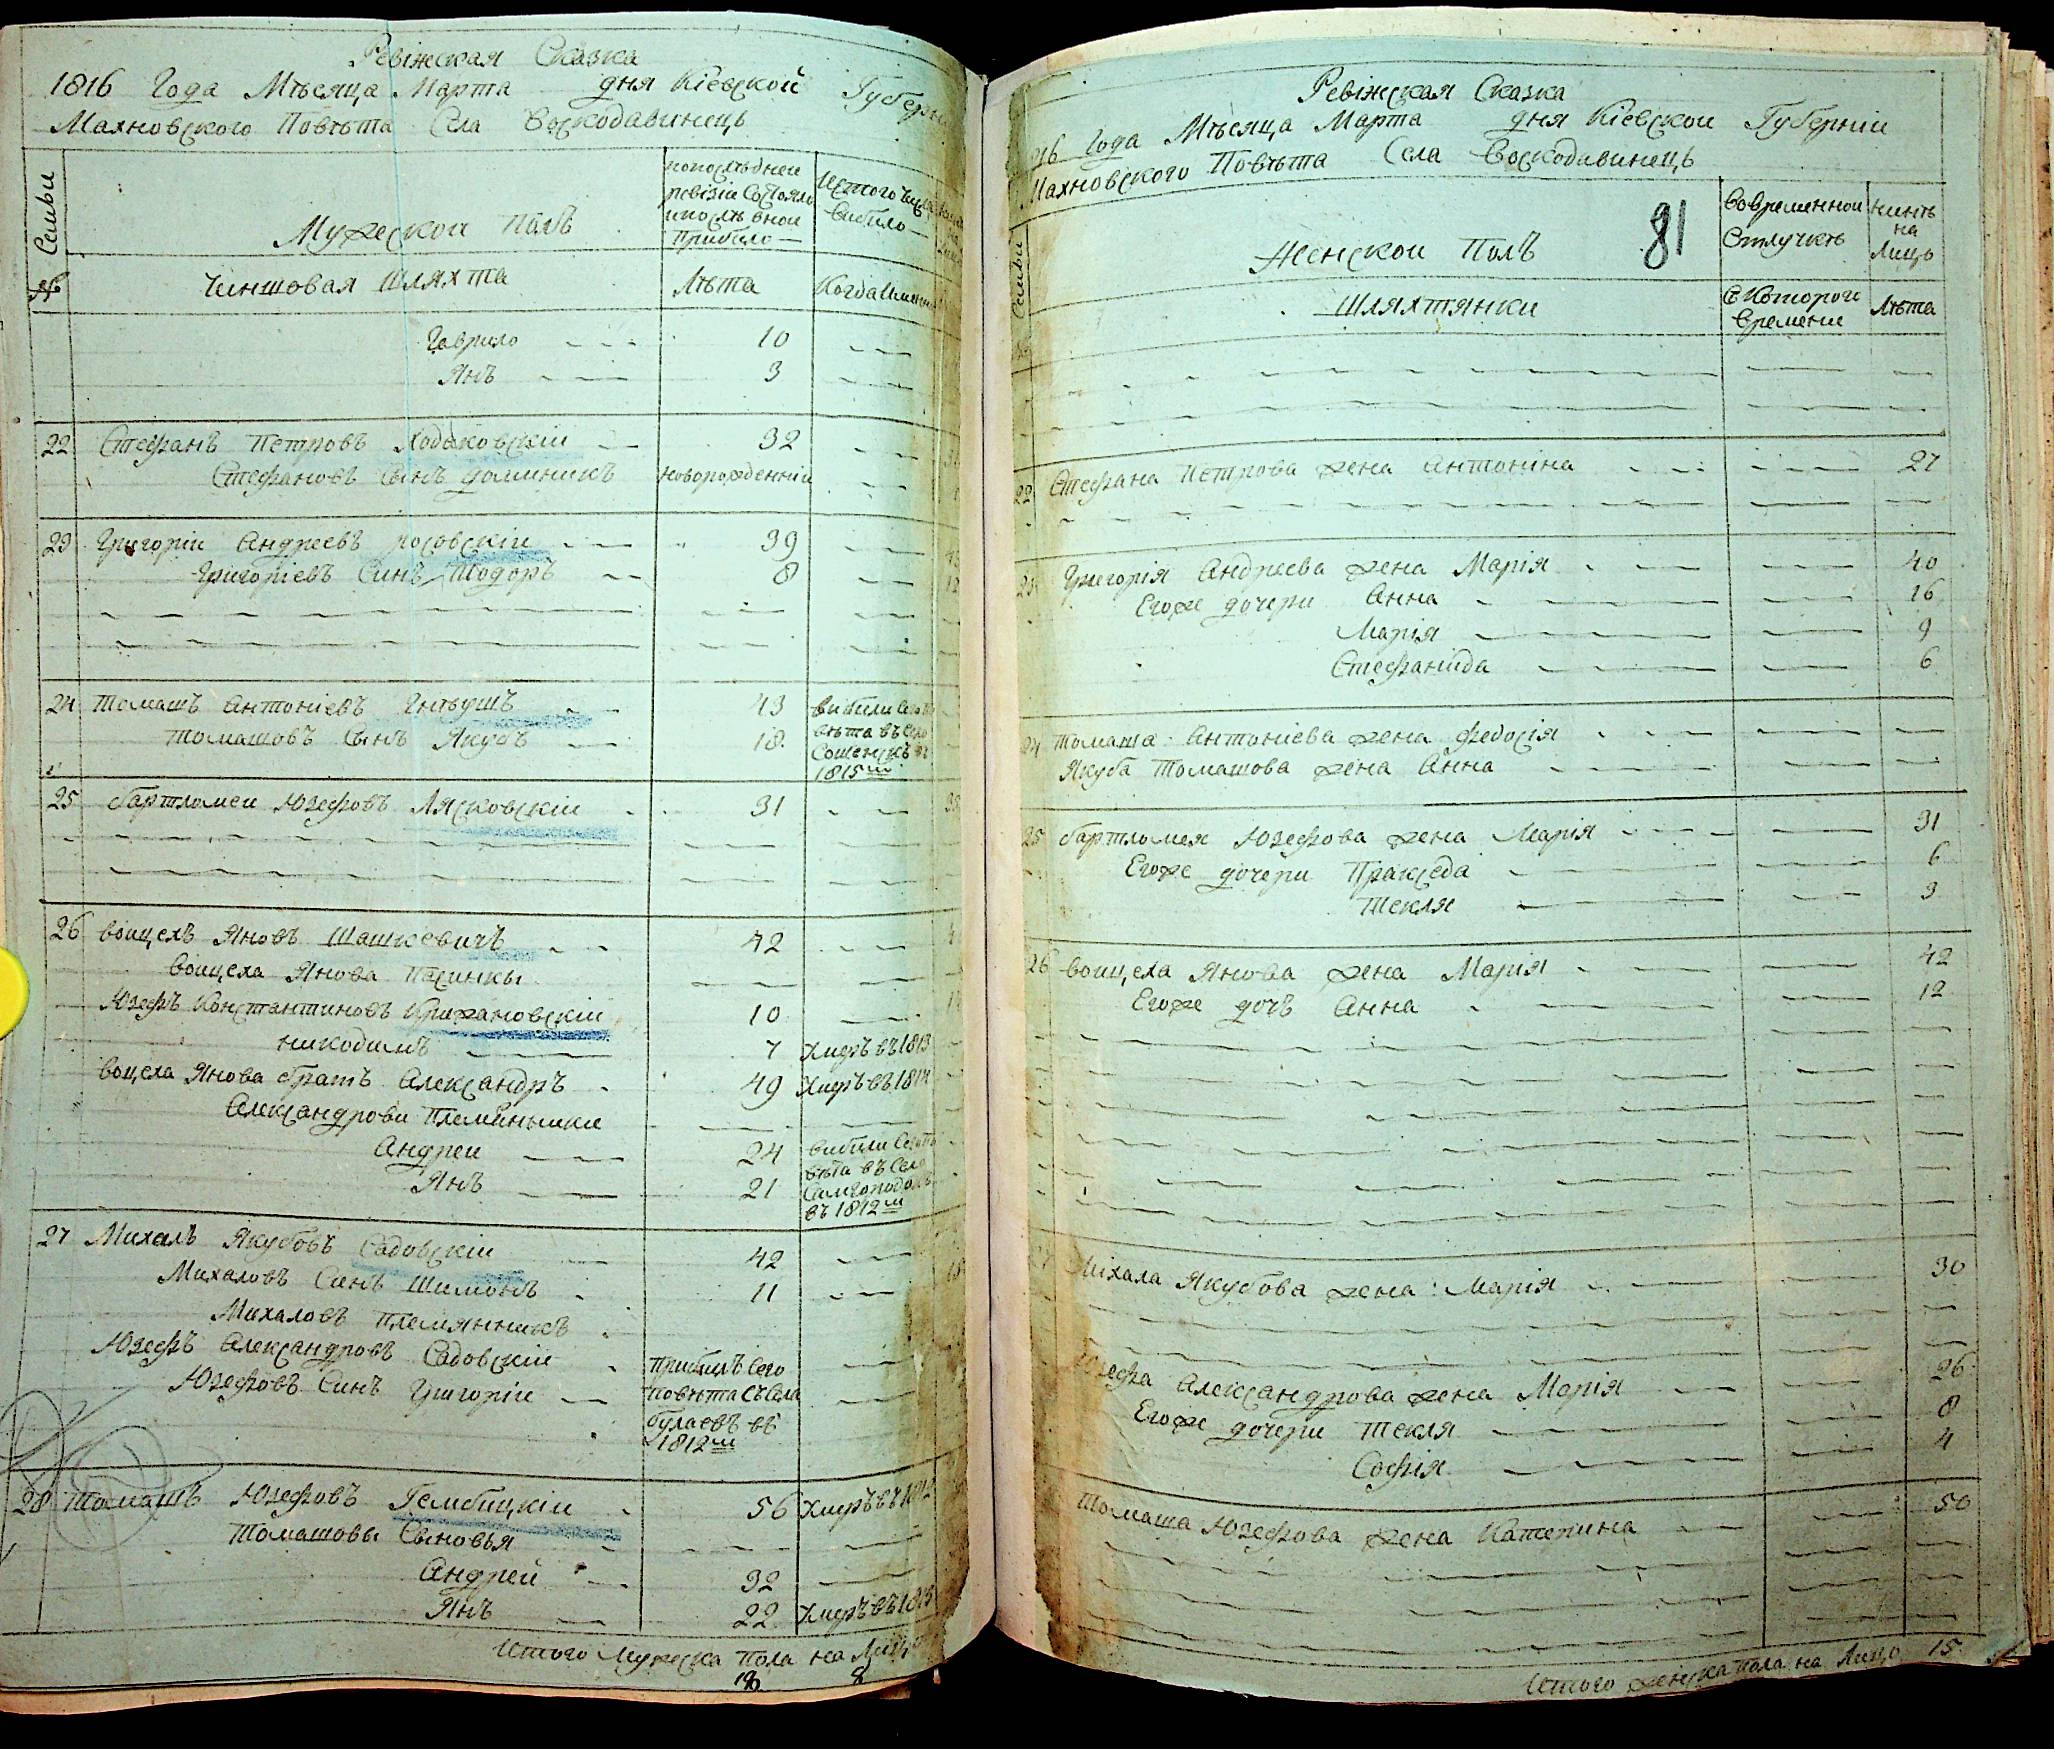 Ревижская Сказка
1816 Года Мѣсяца Марта дня Кіевской Губерн
Махновского Повѣта Села Воскодавинецъ
Семьи
Мужескои Полъ
попослѣднеи
ревизіи Состояло
ипослѣ внои
Прибило
Исттого числа
Вибило
№
Чиншовая Шляхта
Лѣта
Когда Имянно
Гаврило 10
Янъ 3
22 Стефанъ Петровъ Ходаковскіи 32
Стефановъ Сынъ доминикъ новорожденніи
23 Григоріи Андреевъ Росовскіи 39
Григоріевъ Синъ Тодоръ 8
24 Томашъ Антоніевъ 43
Томашовъ Сынъ Якубъ 18
вибили Сего По
вѣта въ Село
1815м
25 бартломеи Юзефовъ Лясковскіи 31
26 воицехъ Яновъ Шашкевичъ 42
Воицеха Янова Пасинки
Юзефъ Константиновъ Крижановскіи 10
никодимъ 7 Умеръ въ 1813
воцеха Янова братъ Александръ 49 Умеръ въ 1814
Александрови Племѣнъники
Андреи 24
Янъ 21
вибили Сего По
вѣта въ Село
Самгородокъ
въ 1812м
27 Михалъ Якубовъ Садовскіи 42
Михаловъ Синъ Шимонъ 11
Михаловъ Племянникъ
Юзефъ Александровъ Садовскіи
Юзефовъ Синъ Григоріи
Прибилъ Сего
повѣта съ Села
булаевъ въ
1812м
28 Томашъ Юзефовъ Гембицкіи 56 Умеръ въ 1812
Томашовы Сыновья
Андрей 32
Янъ 22 Умеръ въ 1813
Итого Мужеска Пола на Лицо
18 8
Ревижская Сказка
816 Года Мѣсяца Марта дня Кіевскои Губерніи
Махновского Повѣта Села Воскодавинецъ
Семьи
Женскои Полъ
81
Вовременнои
Отлучкѣ
Нинѣ
на
Лицо
Шляхтянки
С Которого
Времени
Лѣта
22 Стефана Петрова жена Антонина 27
23 Григорія Андреева жена Марія 40
Егоже дочери Анна 16
Марія 9
Стефанида 6
24 Томаша Антоніева жена Федосія
Якуба Томашова жена Анна
25 бартломея Юзефова жена Марія 31
Егоже дочери Праксѣда 6
Текля 3
26 воицеха Янова жена Марія 42
Егоже дочъ Анна 12
Михала Якубова жена Марія 30
Юзефа Александрова жена Марія 26
Егоже дочери Текля 8
Софія 4
Томаша Юзефова жена Катерина 50
Итого женска пола на Лицо 15